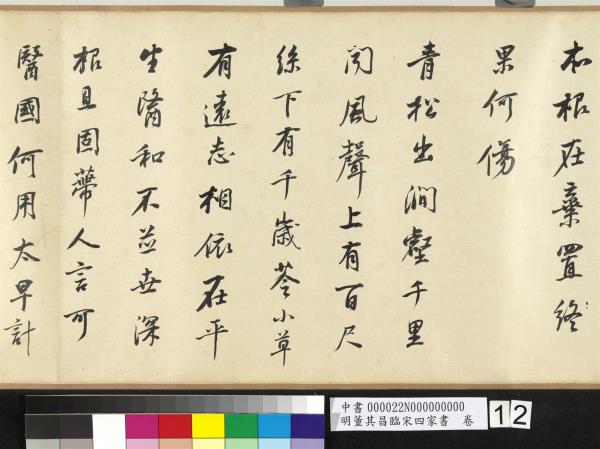 本根在棄置終
果何傷
青松出澗壑千里
聞風聲上有百尺
絲下有千歲苓小草
有遠志相依在平
生醫和不並世深
根且固蔕人言可
醫國何用太早計
中書 000022N000000000
明董其昌臨宋四家書 卷
12